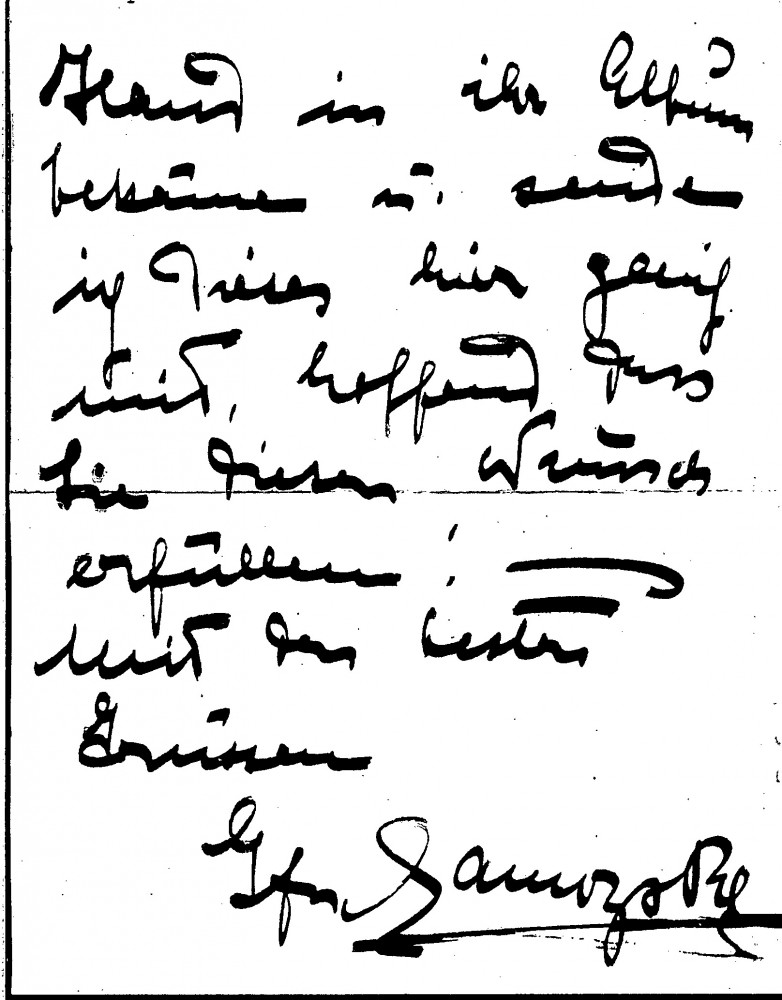 Hand in ihr Album
bekäme u. sende
ich dieses hier gleich
mit, hoffend dass
Sie diesen Wunsch
erfüllen! —
Mit den besten
Grüssen
Gfn Zamoyska